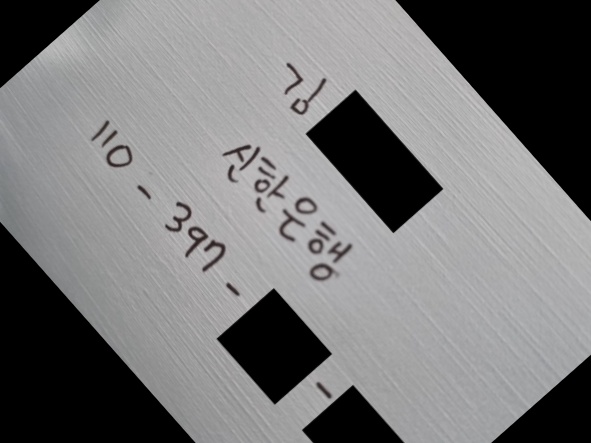 김
신한은행
110 - 397 - -